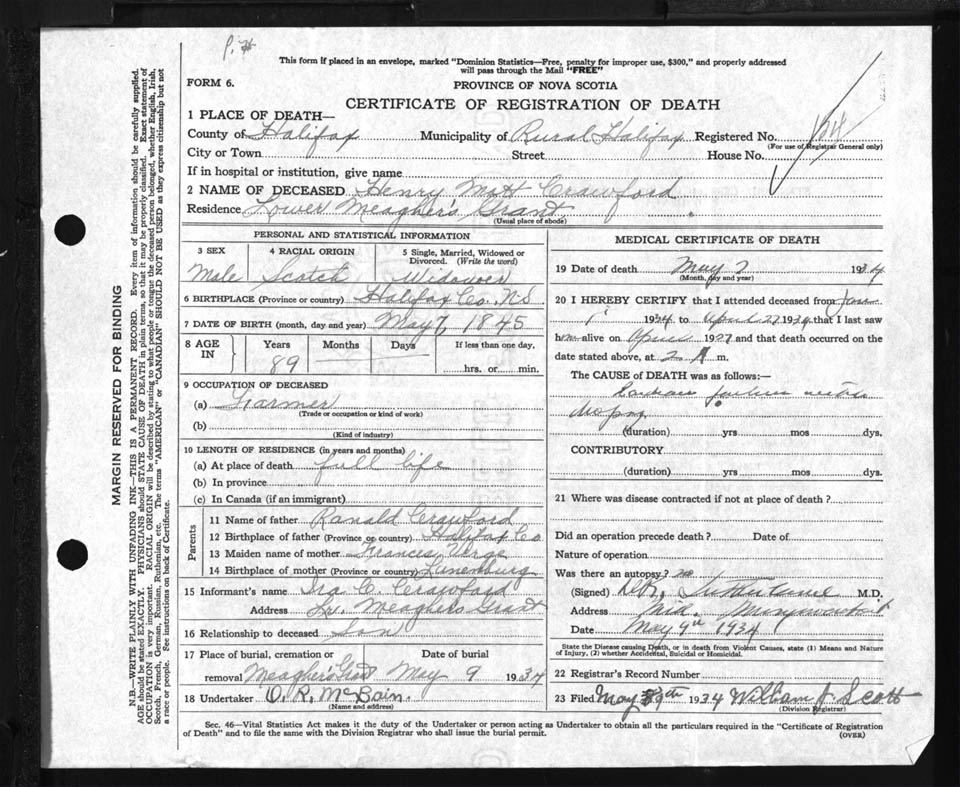 This form if placed in an envelope, marked "Dominion Statistics—Free, penalty for improper use, $300," and properly addressed
will pass through the Mail "FREE"
FORM 6.
PROVINCE OF NOVA SCOTIA
CERTIFICATE OF REGISTRATION OF DEATH
1 PLACE OF DEATH—
County of Halifax Municipality of Rural Halifax Registered No.
(For use of Registrar General only)
City or Town Street House No.
If in hospital or institution, give name
2 NAME OF DECEASED Henry Mott Crawford
Residence Lower Meagher's Grant
(Usual place of abode)
PERSONAL AND STATISTICAL INFORMATION
3 SEX 4 RACIAL ORIGIN 5 Single, Married, Widowed or
Divorced. (Write the word)
Male Scotch Widower
6 BIRTHPLACE (Province or country) Halifax Co. N.S
7 DATE OF BIRTH (month, day and year) May 7, 1845
8 AGE IN Years Months Days If less than one day,
89 hrs. or min.
9 OCCUPATION OF DECEASED
(a) Farmer
(Trade or occupation or kind of work)
(b)
(Kind of industry)
10 LENGTH OF RESIDENCE (in years and months)
(a) At place of death full life
(b) In province
(c) In Canada (if an immigrant)
Parents
11 Name of father Ranald Crawford
12 Birthplace of father (Province or country) Halifax Co
13 Maiden name of mother Frances
14 Birthplace of mother (Province or country) Lunenburg
15 Informant's name Ira C. Crawford
Address Lr. Meaghers Grant
16 Relationship to deceased Son
17 Place of burial, cremation or Date of burial
removal Meagher's Grant May 9 1934
18 Undertaker O. R. McBain.
(Name and address)
MEDICAL CERTIFICATE OF DEATH
19 Date of death May 7 1934
(Month, day and year)
20 I HEREBY CERTIFY that I attended deceased from Jan
1st 1934 to April 27 1934 that I last saw
him alive on April 1927 and that death occurred on the
date stated above, at 2 A m.
The CAUSE of DEATH was as follows:—
failure
(duration) yrs mos dys.
CONTRIBUTORY
(duration) yrs mos dys.
21 Where was disease contracted if not at place of death?
Did an operation precede death? Date of
Nature of operation
Was there an autopsy? no
(Signed) M.D.
Address
Date May 9th 1934
State the Disease causing Death, or in death from Violent Causes, state (1) Means and Nature
of Injury, (2) whether Accidental, Suicidal or Homicidal.
22 Registrar's Record Number
23 Filed May 9th 1934 William J Scott
(Division Registrar)
Sec. 46—Vital Statistics Act makes it the duty of the Undertaker or person acting as Undertaker to obtain all the particulars required in the "Certificate of Registration
of Death" and to file the same with the Division Registrar who shall issue the burial permit.
(OVER)
MARGIN RESERVED FOR BINDING
N.B.—WRITE PLAINLY WITH UNFADING INK—THIS IS A PERMANENT RECORD. Every item of information should be carefully supplied.
AGE should be stated EXACTLY. PHYSICIANS should STATE CAUSE OF DEATH in plain terms, so that it may be properly classified. Exact statement of
OCCUPATION is very important. RACIAL ORIGIN will be described by stating to what people or tongue the deceased person belonged, whether English, Irish,
Scotch, French, German, Russian, Ruthenian, etc. The terms "AMERICAN" or "CANADIAN" SHOULD NOT BE USED as they express citizenship but not
a race or people. See instructions on back of Certificate.